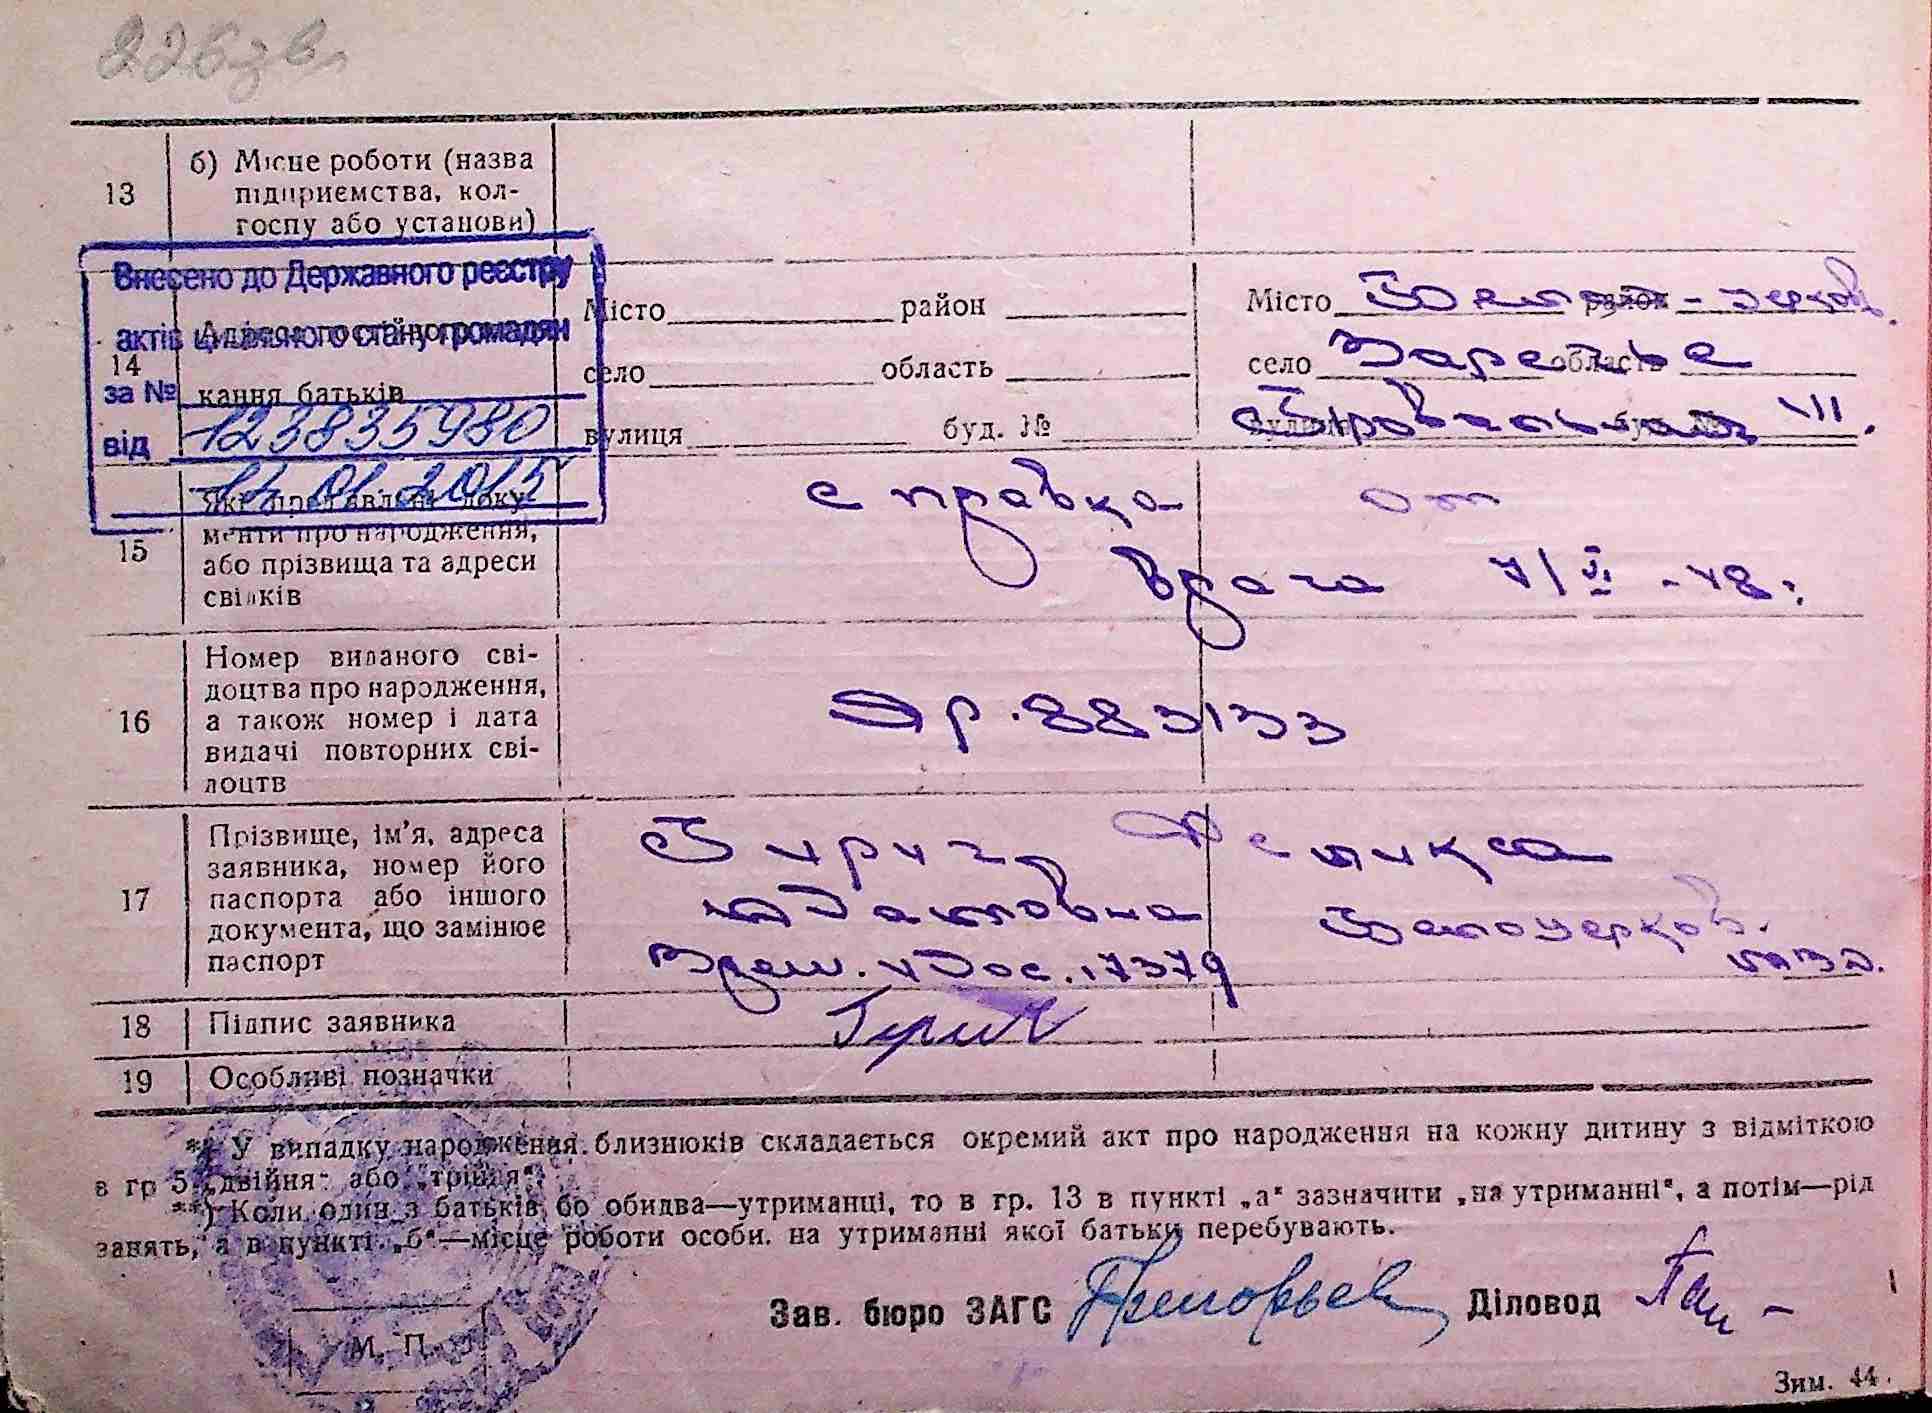 13
б) Місце роботи (назва
підприємства, кол-
госпу або установи)
Внесено до Державного реєстру
актів цивільного стану громадян
за №
123835980
від
14.01.2015
14
кання батьків
Місто район
село область
вулиця буд. №
Місто район - церков.
село Заречье область
буд. №
15
Які пред'явлені доку-
менти про народження,
або прізвища та адреси
свідків
справка от
врача 7/VI -48.
16
Номер виданого сві-
доцтва про народження,
а також номер і дата
видачі повторних сві-
доцтв
883133
17
Прізвище, ім'я, адреса
заявника, номер його
паспорта або іншого
документа, що замінює
паспорт
Гирич Феликса
Адамовна Белоцерков.
Врем. удос. 17379
18
Підпис заявника
Гирич
19
Особливі позначки
*) У випадку народження близнюків складається окремий акт про народження на кожну дитину з відміткою
в гр 5 „двійня" або „трійня".
**) Коли один з батьків бо обидва—утриманці, то в гр. 13 в пункті „а" зазначити „на утриманні", а потім—рід
занять, а в пункті „б"—місце роботи особи. на утриманні якої батьки перебувають.
Зав. бюро ЗАГС Діловод
М. П.
Зим. 44.